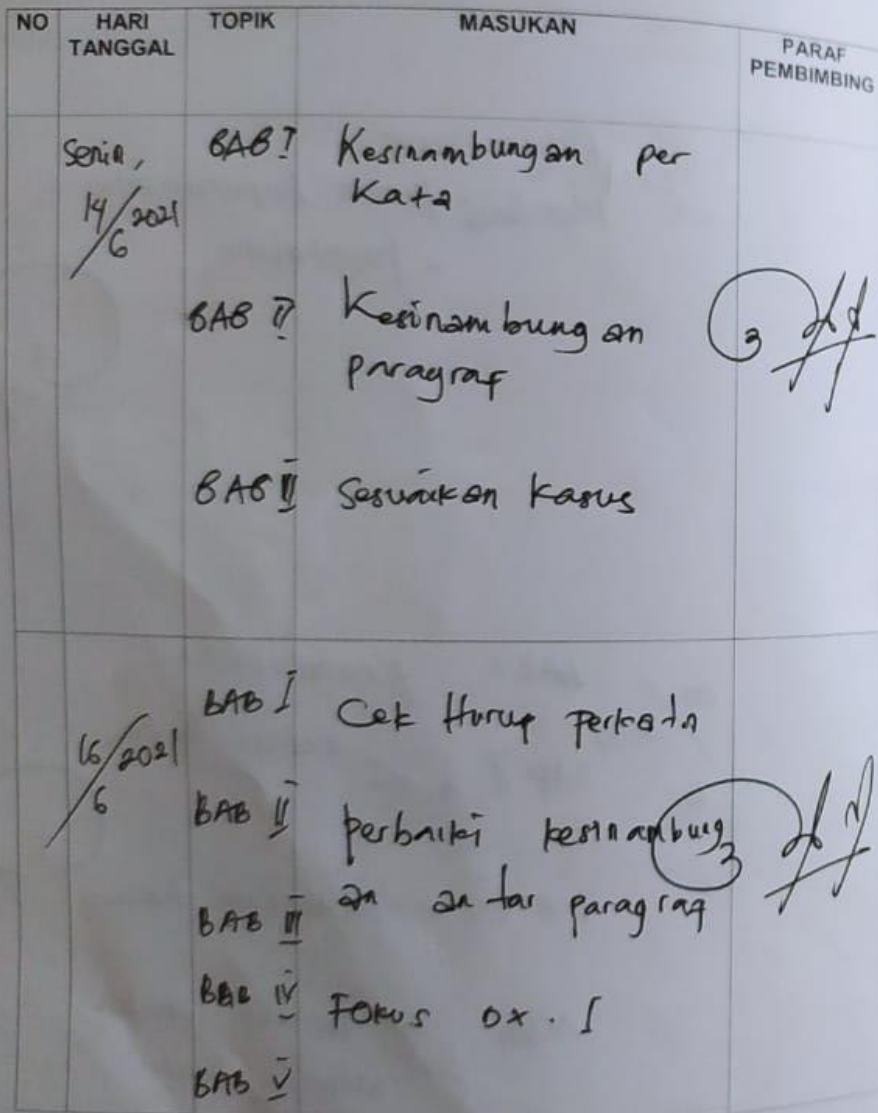 NO HARI TANGGAL TOPIK MASUKAN PARAF PEMBIMBING
Senin, BAB I Kesinambungan per
14/6 2021 Kata
BAB II Kesinambungan
paragraf
BAB III Sesuaikan Kasus
BAB I Cek Huruf perkata
16/6 2021
BAB II perbaiki kesinambung
BAB III an antar paragraf
BAB IV Fokus DX. I
BAB V